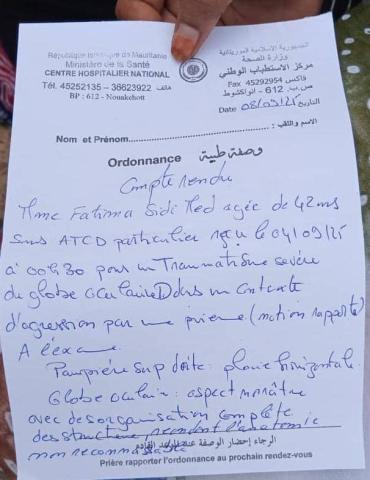 République Islamique de Mauritanie
الجمهورية الإسلامية الموريتانية
Ministère de la Santé
وزارة الصحة
CENTRE HOSPITALIER NATIONAL
مركز الاستطباب الوطني
Tél. 45252135 – 36623922 هاتف
Fax 45292954 فاكس
BP : 612 - Nouakchott
ص.ب. 612 - انواكشوط
Date 08/09/25 التاريخ
Nom et Prénom الاسم واللقب :
Ordonnance وصفة طبية
Compte rendu
Mme Fatima Sidi Med agée de 42 ans
sans ATCD particulier reçu le 04/09/25
à 00h30 pour un Traumatisme sévère
du globe oculaire D dans un contexte
d'agression par une pierre (notion rapporté)
A l'exa
Paupière sup dite : plaie horizontale
Globe oculaire : aspect
avec desorganisation complète
des structure rendant l'anatomie
non reconnaissable
الرجاء إحضار الوصفة عند
Prière rapporter l'ordonnance au prochain rendez-vous